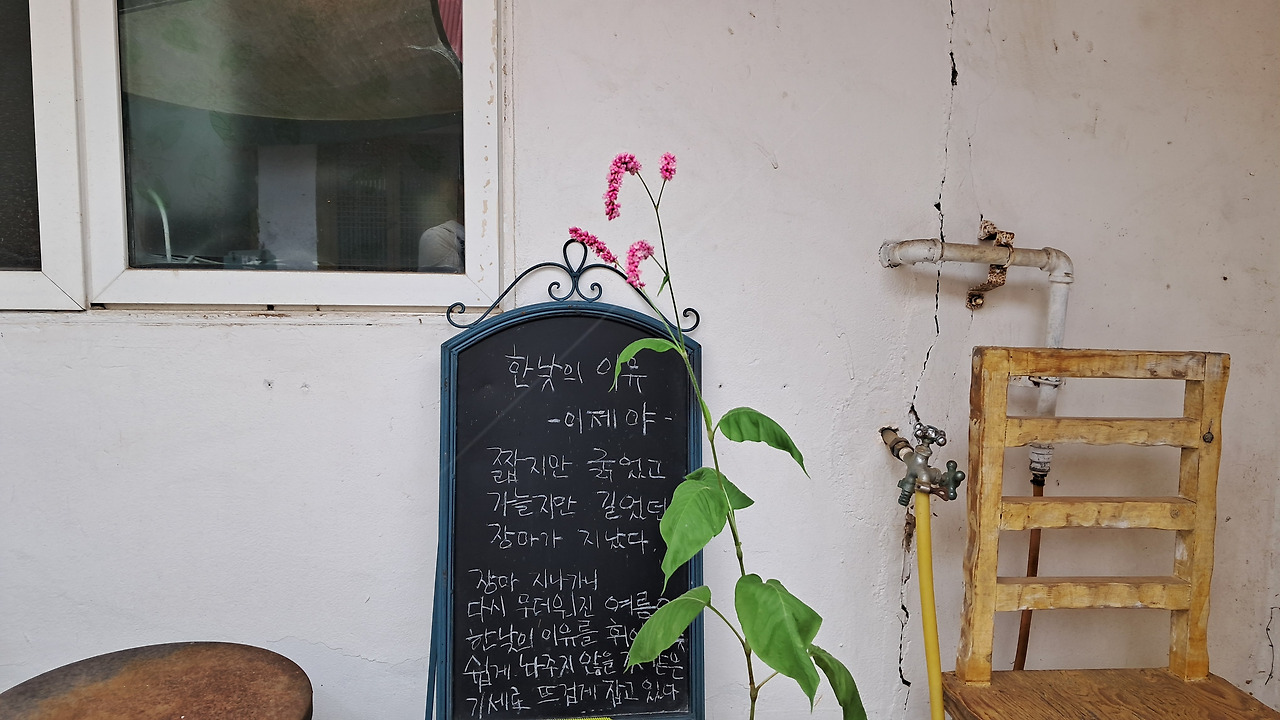 한낮의 이유
-이제야-
짧지만 굵었고
가늘지만 길었던
장마가 지났다.
장마 지나가니
다시 무더워진 여름
한낮의 이유를
쉽게 놔주지 않을 것 같은
기세로 뜨겁게 잡고 있다